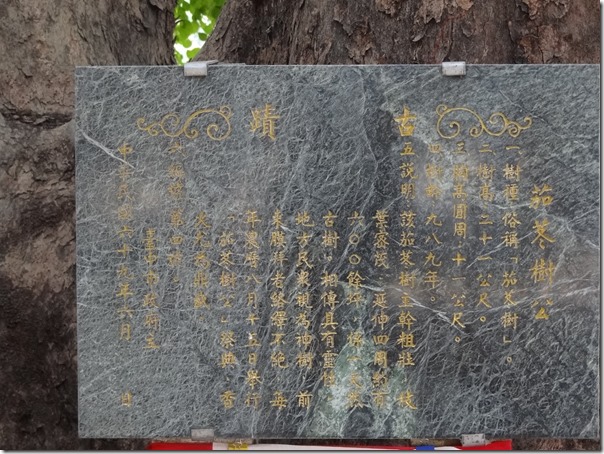 古蹟
茄苳樹公
一樹種俗稱「茄苳樹」。
二樹高二十一公尺。
三樹高圓周十一公尺。
四樹齡九八九年。
五說明 該茄苳樹主幹粗壯 枝
葉盛茂 延伸四周約有
六〇〇餘坪 係
古樹 相傳具有靈性
地方民眾視為神樹 前
來膜拜者絡繹不絕 每
年農曆八月十五日舉行
「茄苳樹公」祭典 香
火尤為鼎盛
第四
臺中市政府立
中華民國六十九年六月 日